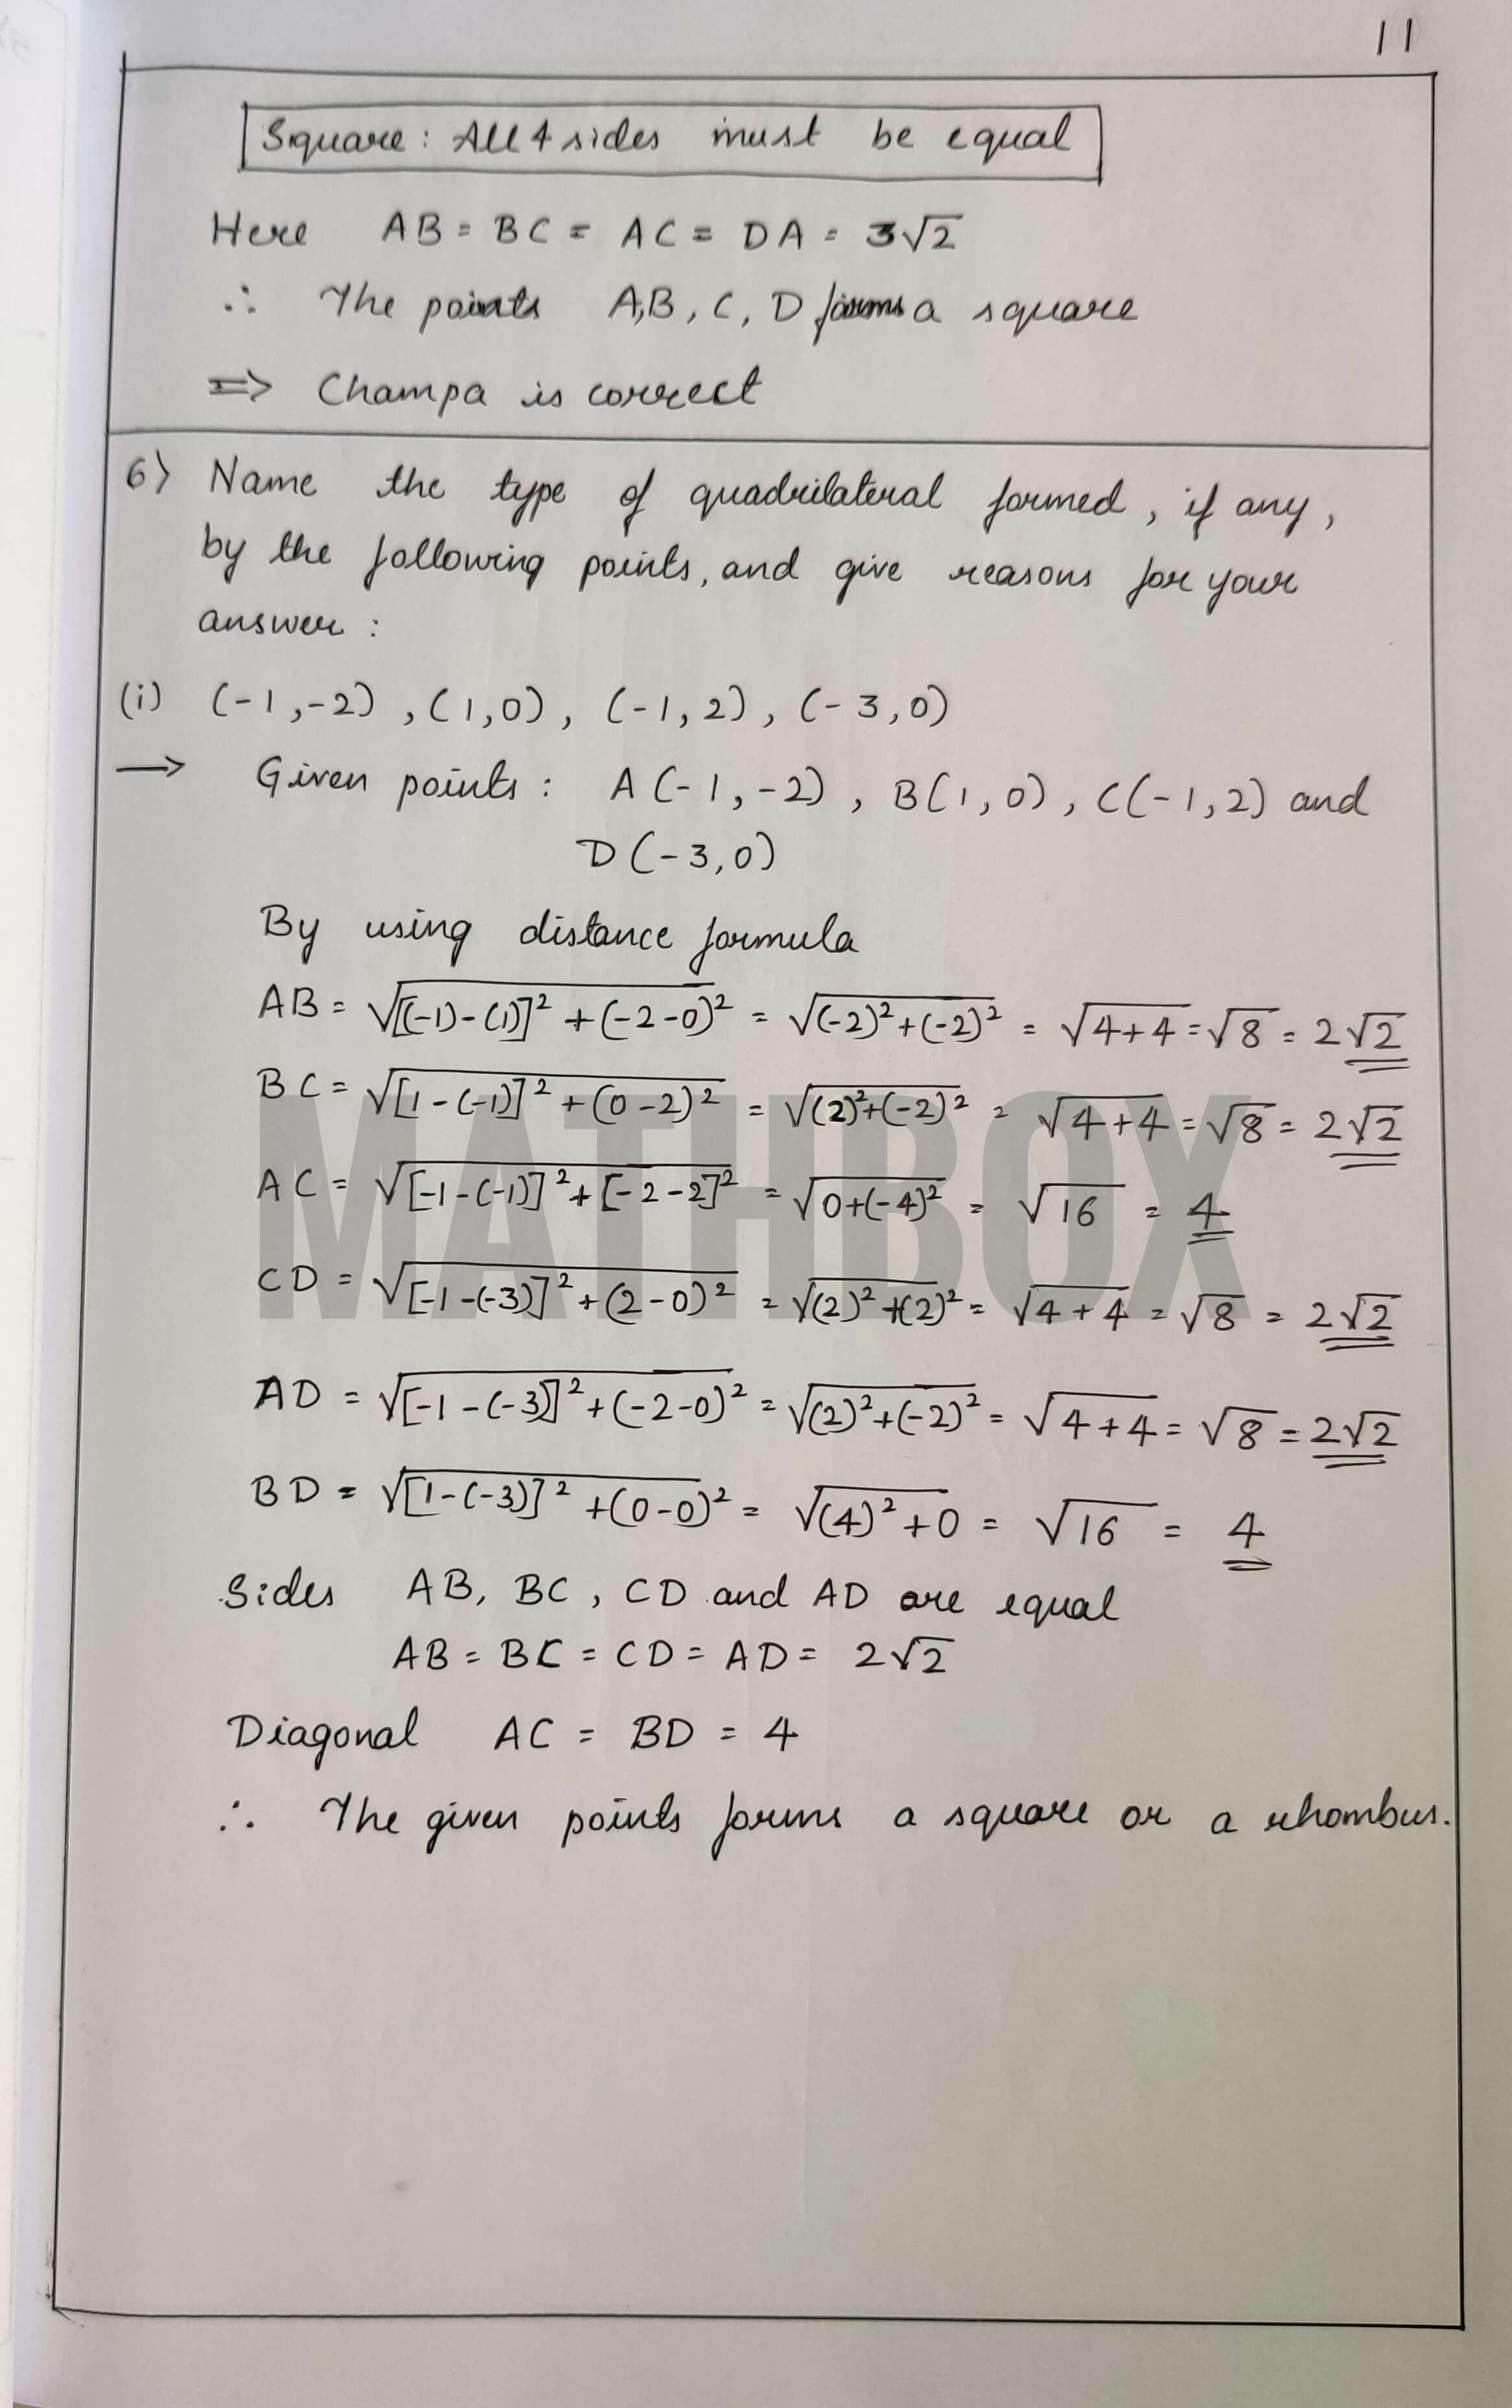 11
Square: All 4 sides must be equal
Here AB = BC = AC = DA = 3√2
∴ The points A,B, C, D forms a square
=> Champa is correct
6) Name the type of quadrilateral formed, if any,
by the following points, and give reasons for your
answer :
(i) (-1,-2), (1,0), (-1,2), (-3,0)
→ Given points : A(-1,-2), B(1,0), C(-1,2) and
D(-3,0)
By using distance formula
AB = √[(-1)-(1)]² + (-2-0)² = √(-2)²+(-2)² = √4+4 = √8 = 2√2
BC = √[1-(-1)]² + (0-2)² = √(2)²+(-2)² = √4+4 = √8 = 2√2
AC = √[-1-(-1)]² + [-2-2]² = √0+(-4)² = √16 = 4
CD = √[-1-(-3)]² + (2-0)² = √(2)²+(2)² = √4+4 = √8 = 2√2
AD = √[-1-(-3)]² + (-2-0)² = √(2)²+(-2)² = √4+4 = √8 = 2√2
BD = √[1-(-3)]² + (0-0)² = √(4)²+0 = √16 = 4
Sides AB, BC, CD and AD are equal
AB = BC = CD = AD = 2√2
Diagonal AC = BD = 4
∴ The given points forms a square or a rhombus.
MATHBOX